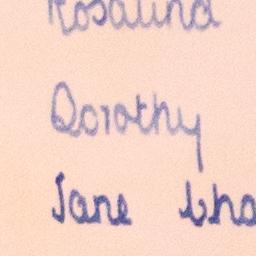 Rosalind
Dorothy
Jane